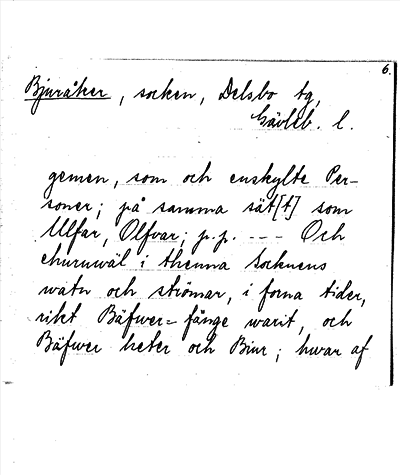 6.
Bjuråker, socken, Delsbo tg,
Gävleb. l.
gemen, som och enskylte Per-
soner; på samma sät[t] som
Ulfar, Olfvar; p.p. --- Och
churuwäl i thenna Socknens
watn och strömar, i forna tider,
rikt Bäfwer-fänge warit, och
Bäfwer heter och Biur; hwar af